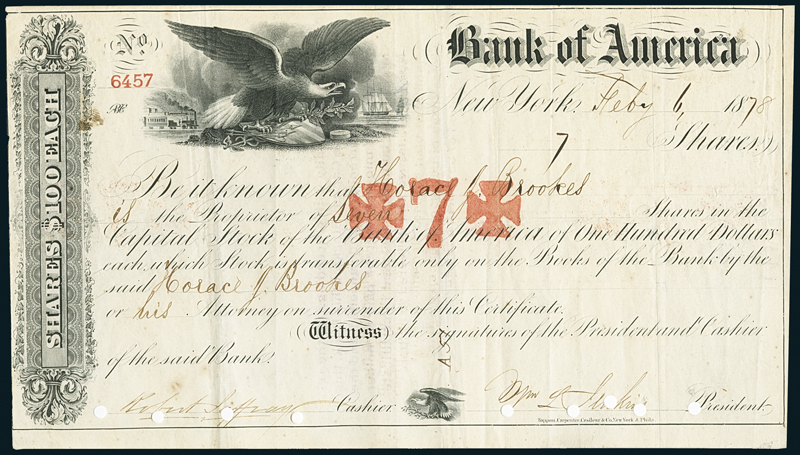 No.
6457
Bank of America
New York, Feby 6, 1878
7 Shares.
Be it known that Horace J. Brookes
is the Proprietor of seven Shares in the
7
Capital Stock of the Bank of America of One Hundred Dollars
each, which Stock is transferable only on the Books of the Bank by the
said Horace J. Brookes
or his Attorney on surrender of this Certificate.
Witness the signatures of the President and Cashier
of the said Bank.
Cashier
Wm L Jenkins President
SHARES $100 EACH